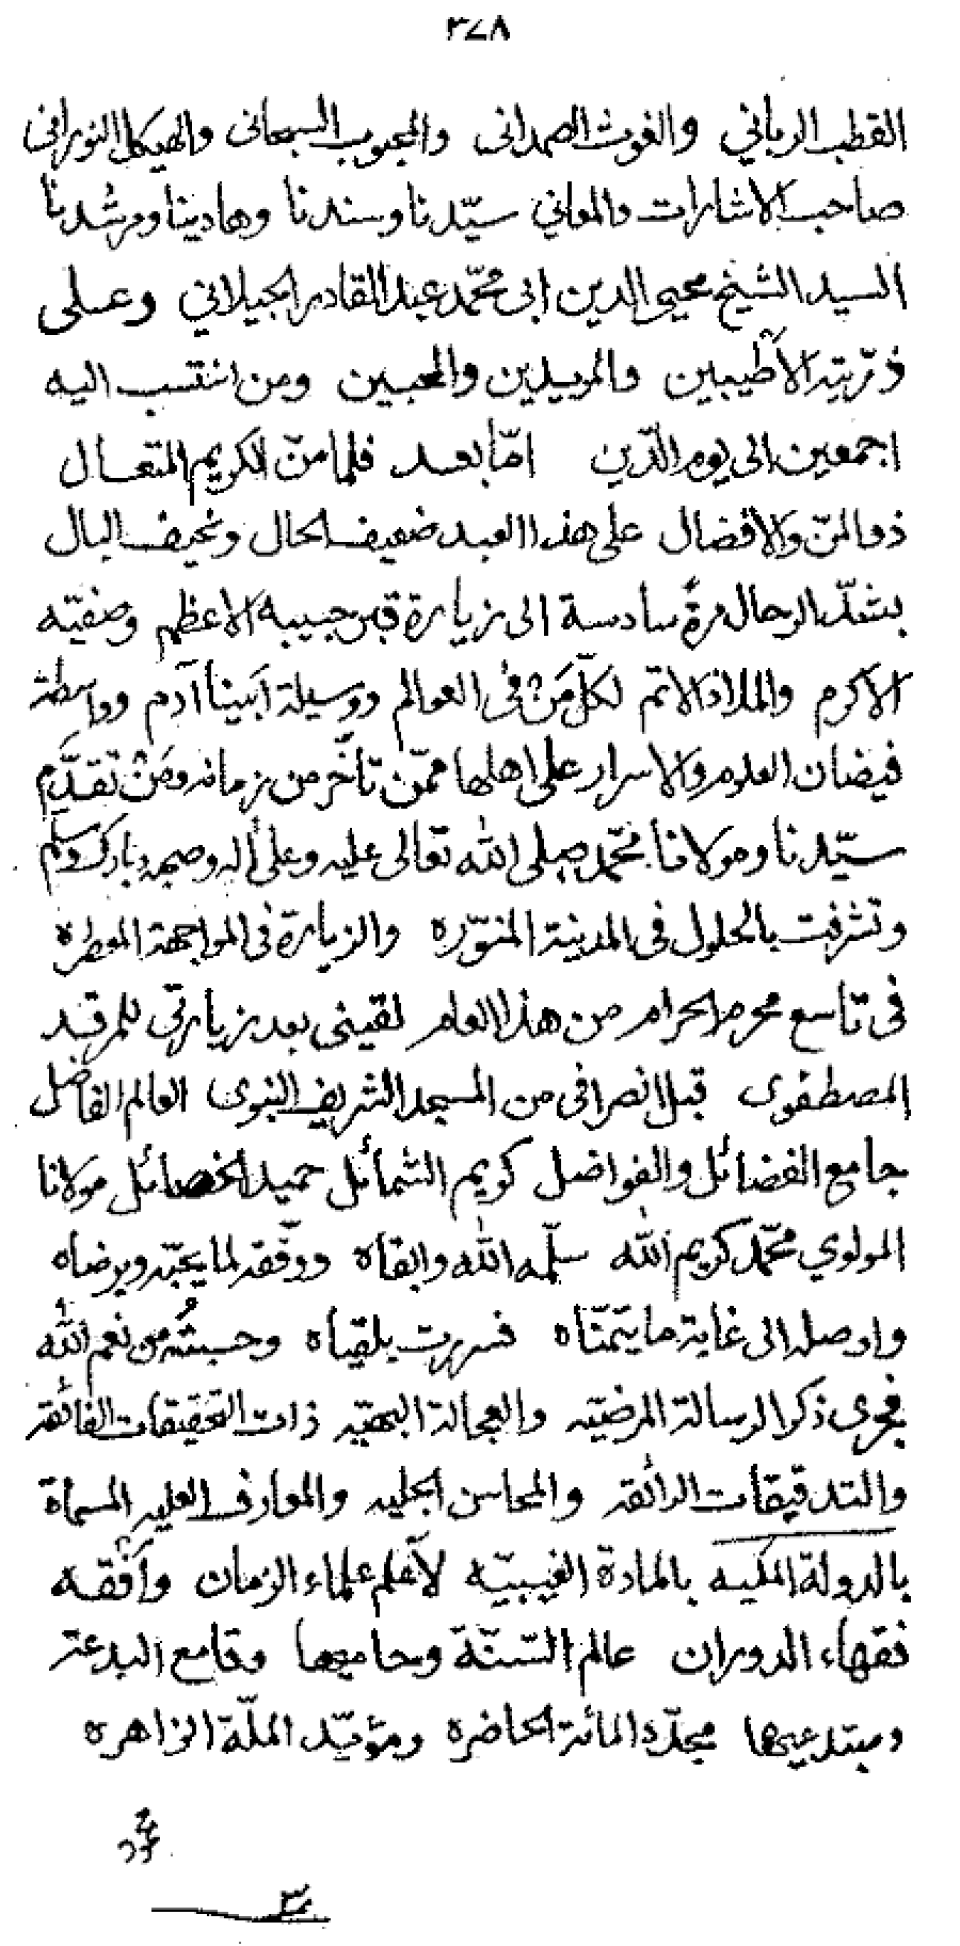 ٣٧٨
القطب الرباني والغوث الصمدانى والمحبوب السبحانى والهيكل النورانى
صاحب الاشارات والمعاني سيّدنا وسندنا وهادينا ومرشدنا
السيد الشيخ محيى الدين ابى محمّد عبد القادر الجيلاني وعلى
ذرّيته الأطيبين والمريدين والمحبين ومن انتسب اليه
اجمعين الى يوم الدّين امّا بعد فلما منّ الكريم المتعال
ذو المنّ والافضال على هذا العبد ضعيف الحال ونحيف البال
بشدّ الرحال مرةً سادسة الى زيارة قبر حبيبه الاعظم وصفيّه
الاكرم والملاذ الاتم لكلّ مَنْ فى العوالم ووسيلة أبينا آدم وواسطة
فيضان العلوم والاسرار على اهلها ممّن تأخّر من زمانه ومَنْ تقدَّم
سيّدنا ومولانا محمّد صلى الله تعالى عليه وعلى أله وصحبه وبارك وسلم
وتشرفت بالحلول فى المدينة المنوّره والزيارة فى المواجهة المعطره
فى تاسع محرم الحرام من هذا العام لقينى بعد زيارتى للمرقد
المصطفوى قبل انصرافى من المسجد الشريف النبوى العالم الفاضل
جامع الفضائل والفواضل كريم الشمائل حميد الخصائل مولانا
المولوي محمّد كريم الله سلّمه الله وابقاه ووفّقه لما يحبّه ويرضاه
واوصله الى غاية ما يتمنّاه فسررت بلقياه وحسبتُه من نعم الله
فجرى ذكر الرسالة المرضيّه والعجالة البهيّه ذات التحقيقات الفائقه
والتدقيقات الرائقه والمحاسن الجليه والمعارف العليه المسماة
بالدولة المكيه بالمادة الغيبيّه لأعلم علماء الزمان وأفقه
فقهاء الدوران عالم السّنّة وحاميها وقامع البدعة
ومبتدعيها مجدّد المائة الحاضره ومؤيّد الملّة الزاهره
٣